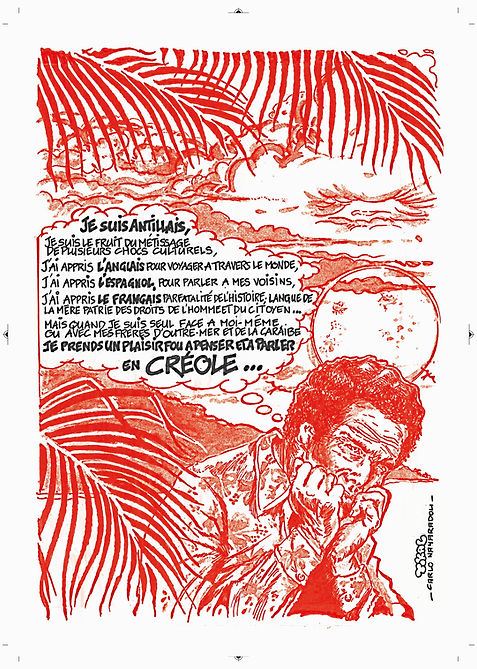 JE SUIS ANTILLAIS,
JE SUIS LE FRUIT DU MÉTISSAGE
DE PLUSIEURS CHOCS CULTURELS,
J'AI APPRIS L'ANGLAIS POUR VOYAGER A TRAVERS LE MONDE,
J'AI APPRIS L'ESPAGNOL, POUR PARLER A MES VOISINS,
J'AI APPRIS LE FRANÇAIS PAR FATALITÉ DE L'HISTOIRE, LANGUE DE
LA MÈRE PATRIE DES DROITS DE L'HOMME ET DU CITOYEN...
MAIS QUAND JE SUIS SEUL FACE A MOI-MÊME
OU AVEC MES FRÈRES D'OUTRE-MER ET DE LA CARAÏBE
JE PRENDS UN PLAISIR FOU A PENSER ET A PARLER
EN CRÉOLE ...